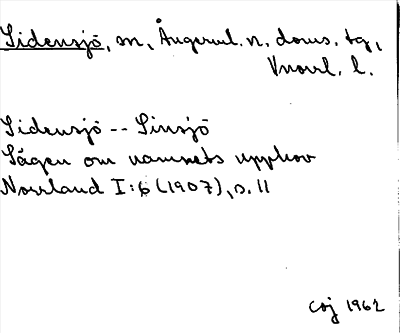 Sidensjö, sn, Ångerml. n. doms. tg,
Vnorrl. l.
Sidensjö -- Sinsjö
Sägen om namnets upphov
Norrland I:6 (1907), s. 11
Coj 1962